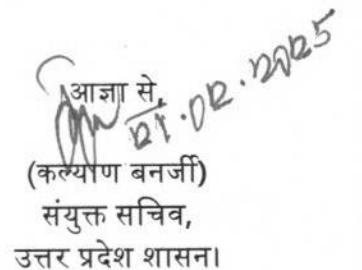 आज्ञा से,
21.02.2025
(कल्याण बनर्जी)
संयुक्त सचिव,
उत्तर प्रदेश शासन।